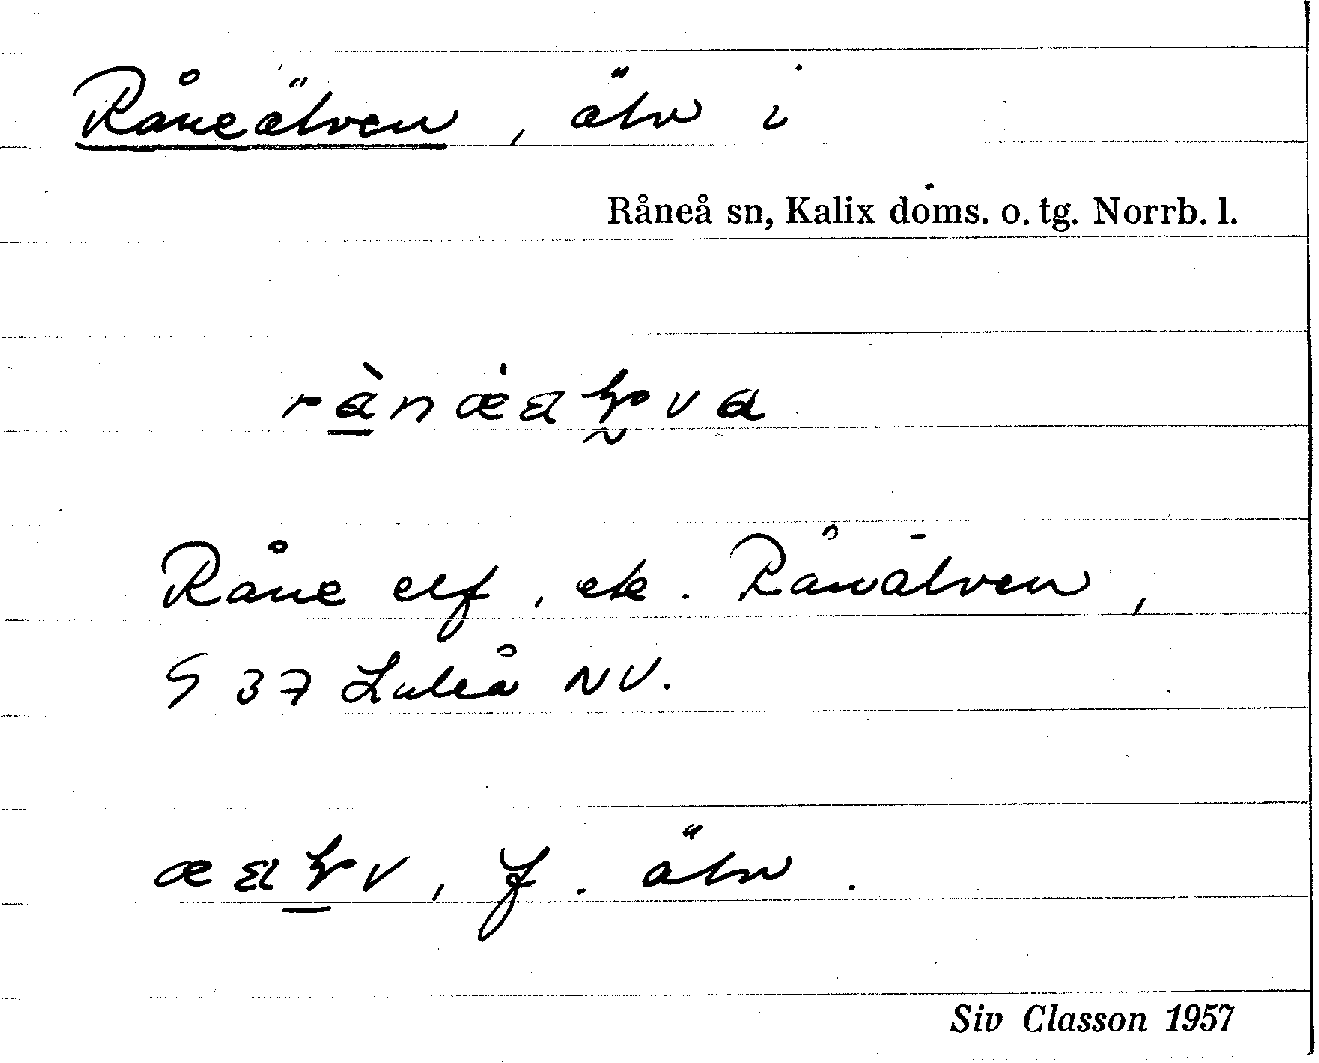 Råneälven, älv i
Råneå sn, Kalix doms. o. tg. Norrb. l.
Råne elf, ek. Rånälven,
S 37 Luleå NV.
f. älv.
Siv Classon 1957